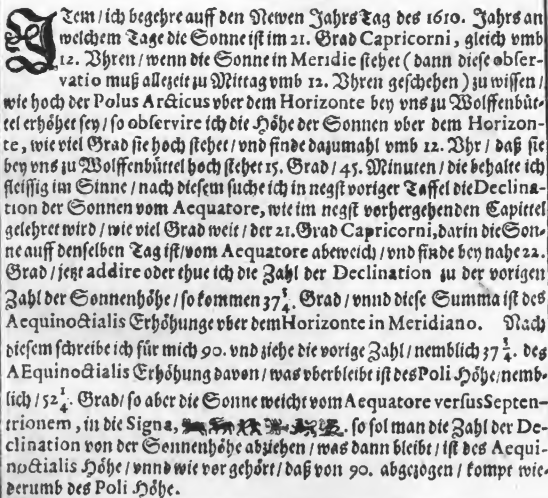 ITem / ich begehre auff den Newen Jahrs Tag des 1610. Jahrs an
welchem Tage die Sonne ist im 21. Grad Capricorni, gleich vmb
12. Vhren / wenn die Sonne in Meridie stehet (dann diese obser-
vatio muß allezeit zu Mittag vmb 12. Vhren geschehen) zu wissen /
wie hoch der Polus Arcticus vber dem Horizonte bey vns zu Wolffenbüt-
tel erhöhet sey / so observire ich die Höhe der Sonnen vber dem Horizon-
te, wie viel Grad sie hoch stehet / vnd finde dazumahl vmb 12. Vhr / daß sie
bey vns zu Wolffenbüttel hoch stehet 15. Grad / 45. Minuten / die behalte ich
fleissig im Sinne / nach diesem suche ich in negst voriger Taffel die Declina-
tion der Sonnen vom Aequatore, wie im negst vorhergehenden Capittel
gelehret wird / wie viel Grad weit / der 21. Grad Capricorni, darin die Son-
ne auff denselben Tag ist / vom Aequatore abweich / vnd finde bey nahe 22.
Grad / jetzt addire oder thue ich die Zahl der Declination zu der vorigen
Zahl der Sonnenhöhe / so kommen 37 3/4. Grad / vnnd diese Summa ist des
Aequinoctialis Erhöhunge vber dem Horizonte in Meridiano. Nach
diesem schreibe ich für mich 90. vnd ziehe die vorige Zahl / nemblich 37 3/4. des
AEquinoctialis Erhöhung davon / was vberbleibt ist des Poli Höhe / nemb-
lich / 52 1/4. Grad / so aber die Sonne weicht vom Aequatore versus Septen-
trionem, in die Signa, so sol man die Zahl der De-
clination von der Sonnenhöhe abziehen / was dann bleibt / ist des Aequi-
noctialis Höhe / vnnd wie vor gehört / daß von 90. abgezogen / kompt wie-
derumb des Poli Höhe.